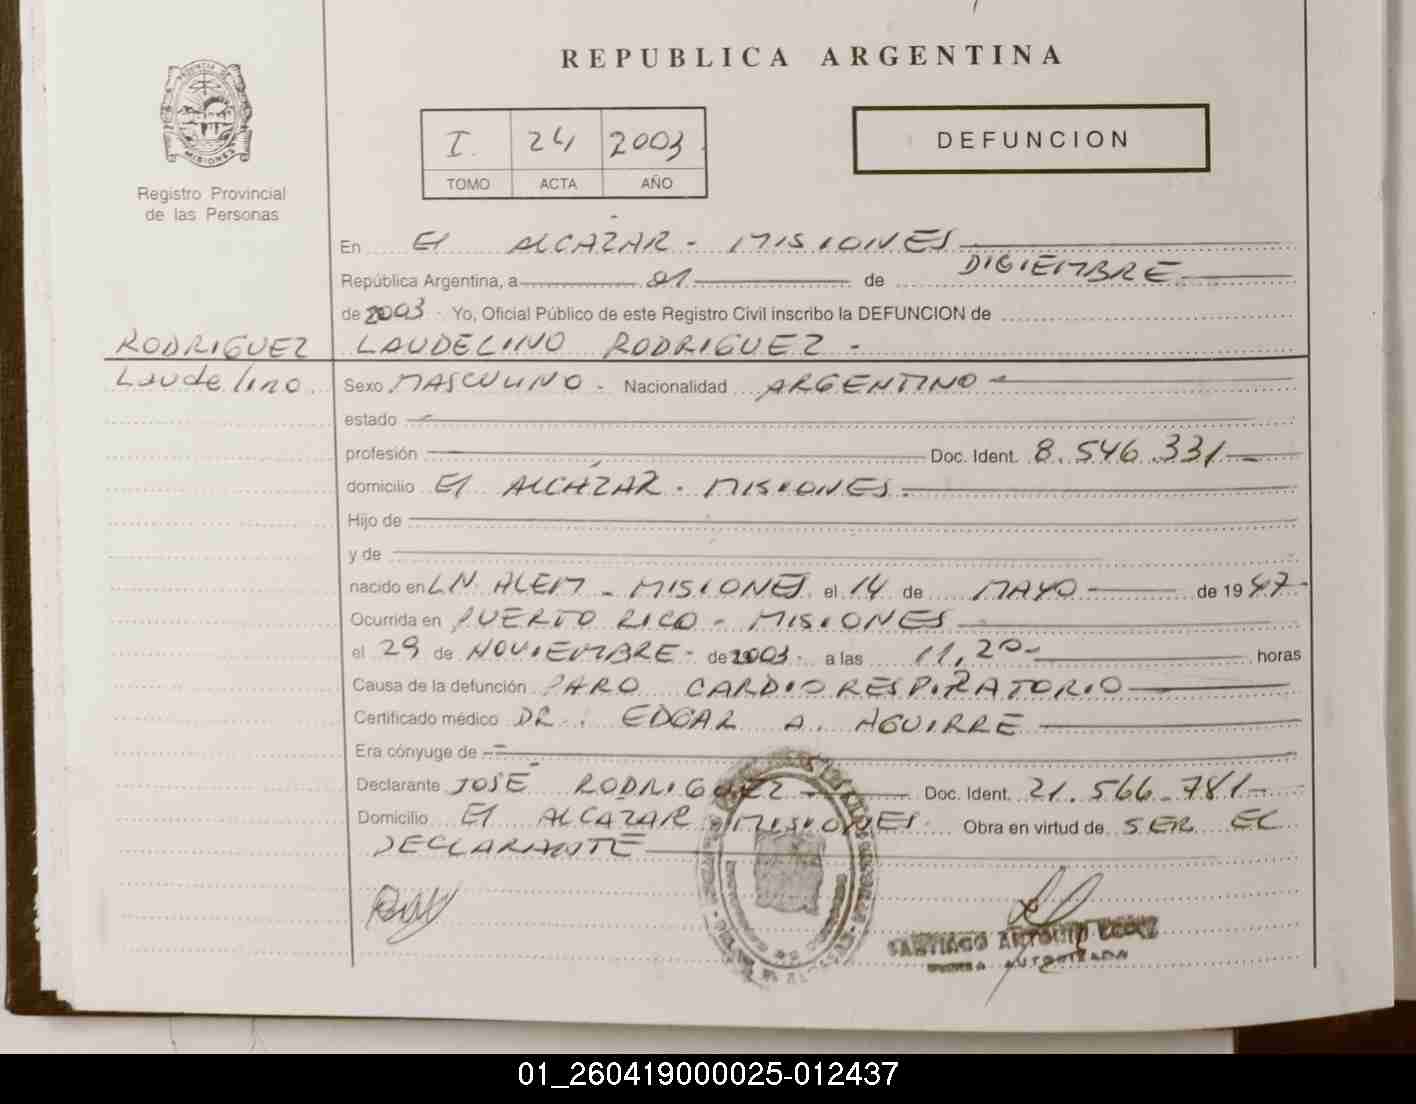 REPUBLICA ARGENTINA
I. 24 2003
TOMO ACTA AÑO
DEFUNCION
MISIONES
Registro Provincial
de las Personas
En El ALCÁZAR - MISIONES
República Argentina, a 01 de DICIEMBRE
de 2003 - Yo, Oficial Público de este Registro Civil inscribo la DEFUNCION de
RODRIGUEZ LAUDELINO RODRIGUEZ -
Laudelino Sexo MASCULINO - Nacionalidad ARGENTINO -
estado
profesión Doc. Ident. 8.546.331 -
domicilio El ALCÁZAR - MISIONES.
Hijo de
y de
nacido en L.N. ALEM - MISIONES el 14 de MAYO de 1947 -
Ocurrida en PUERTO RICO - MISIONES
el 29 de NOVIEMBRE - de 2003 - a las 11,20 - horas
Causa de la defunción PARO CARDIORESPIRATORIO
Certificado médico DR. EDGAR A. AGUIRRE
Era cónyuge de
Declarante JOSÉ RODRIGUEZ - Doc. Ident. 21.566.781 -
Domicilio El ALCAZAR MISIONES Obra en virtud de SER EL
DECLARANTE
SANTIAGO ANTONIO
AUTORIZADA
01_260419000025-012437